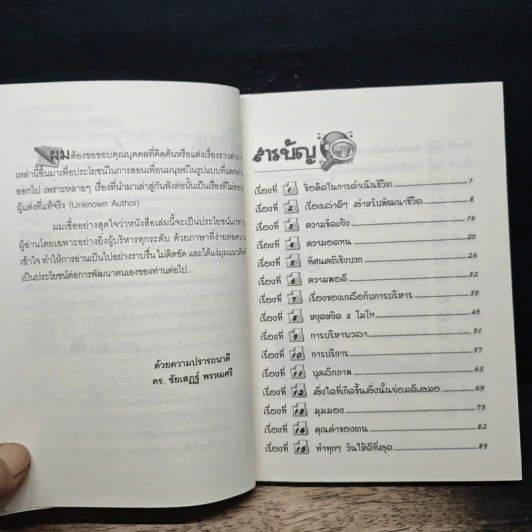 ผมต้องขอขอบคุณบุคคลที่คิดค้นหรือแต่งเรื่องราวต่าง
เหล่านี้ขึ้นมาเพื่อประโยชน์ในการสอนเพื่อนมนุษย์ในรูปแบบที่แตกต่าง
ออกไป เพราะหลายๆ เรื่องที่นำมาเล่าสู่กันฟังต่อนั้นเป็นเรื่องที่ไม่ทราบ
ผู้แต่งที่แท้จริง (Unknown Author)
ผมเชื่ออย่างสุดใจว่าหนังสือเล่มนี้จะเป็นประโยชน์แก่ท่าน
ผู้อ่านโดยเฉพาะอย่างยิ่งผู้บริหารทุกระดับ ด้วยภาษาที่ง่ายต่อความ
เข้าใจ ทำให้การอ่านเป็นไปอย่างราบรื่น ไม่ติดขัด และได้แง่มุมแนวคิดที่
เป็นประโยชน์ต่อการพัฒนาตนเองของท่านต่อไป...
ด้วยความปรารถนาดี
ดร. ชัยเสฏฐ์ พรหมศรี
สารบัญ
เรื่องที่ 1 ข้อคิดในการดำเนินชีวิต 1
เรื่องที่ 2 เรื่องเล่าดีๆ สำหรับพัฒนาชีวิต 8
เรื่องที่ 3 ความขัดแย้ง 14
เรื่องที่ 4 ความอดทน 20
เรื่องที่ 5 ทัศนคติเชิงบวก 26
เรื่องที่ 6 ความพอดี 32
เรื่องที่ 7 เรื่องของเกลือกับการบริหาร 39
เรื่องที่ 8 หงุดหงิด & โมโห 45
เรื่องที่ 9 การบริหารเวลา 51
เรื่องที่ 10 การบริการ 57
เรื่องที่ 11 บุคลิกภาพ 63
เรื่องที่ 12 สิ่งใดที่เกิดขึ้นสิ่งนั้นย่อมดีเสมอ 69
เรื่องที่ 13 มุมมอง 75
เรื่องที่ 14 คุณค่าของตน 82
เรื่องที่ 15 ทำทุกๆ วันให้ดีที่สุด 89